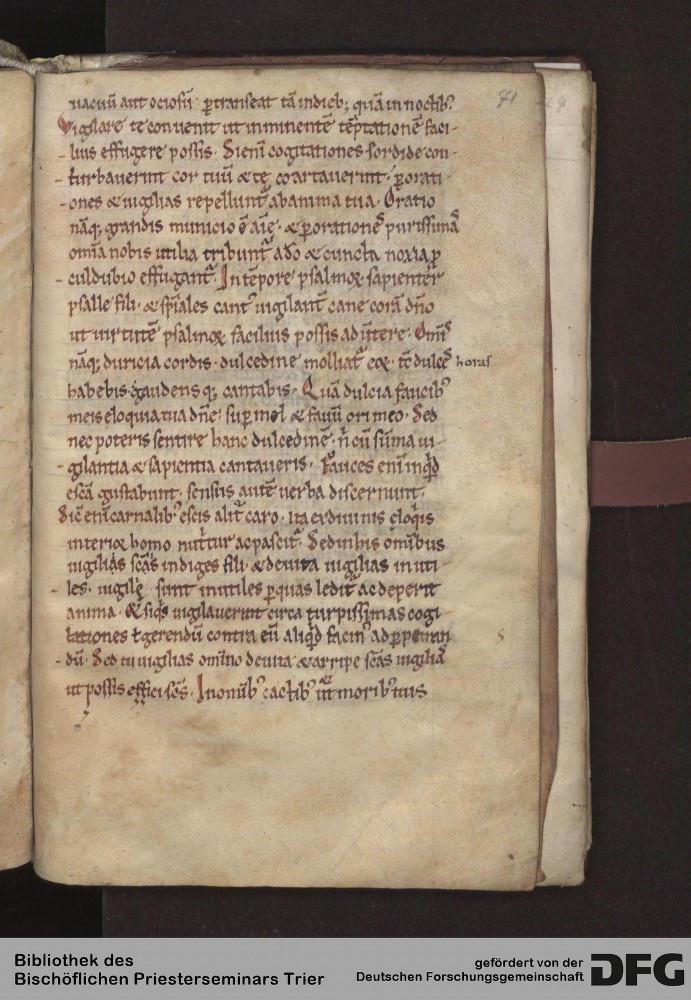 71
uacuū aut ociosū ꝑtranseat tā indieb; quā in noctib᷒
Vigilare te conuenit ut inminentē tēptationē faci-
lius effugere possis. Si eni cogitationes sordide con-
turbauerint cor tuū & te coartauerint. ꝑ orati-
ones & uigilias repellunt᷒ ab anima tua. Oratio
nāq; grandis municio ē aīę. & ꝑ orationē purissimā
omīa nobis utilia tribunt᷒ a dō & cuncta noxia ꝓ
cul dubio effugant᷒. In tēpore psalmoꝝ sapienter
psalle fili. & spīales cant᷒ uigilant᷒ cane corā dn̄o
ut uirtutē psalmoꝝ facilius possis aduertere. Omīs
nāq; duricia cordis. dulcedine molliat᷒ eoꝝ. tc̄ dulcē horus
habebis. gaudens q; cantabis. Quā dulcia faucib᷒
meis eloquia tua dn̄e. suꝑ mel & fauū ori meo. Sed
nec poteris sentire hanc dulcedinē. n̄ cū sūma ui-
gilantia & sapientia cantaueris. Fauces enī inquid
escā gustabunt. sensus autē uerba discernunt.
Sic enī carnalib᷒ escis alit᷒ caro. ita ex diuinis eloqis
interioꝝ homo nutritur ac pascit᷒. Sed in his omībus
uigilias scās indiges fili. & deuita uigilias inuti-
les. uigilię sunt inutiles ꝑ quas ledit᷒ ac deperit
anima. & siqs uigilauerint circa turpissimas cogi-
tationes ł gerendū contra eū aliqd facin᷒ ad ꝑpetran
dū. Sed tu uigilias omīno deuita & arripe scās uigilias
ut possis effici scs̄. In omīb᷒ actib᷒ moribus tuis
Bibliothek des
Bischöflichen Priesterseminars Trier
gefördert von der
Deutschen Forschungsgemeinschaft
DFG